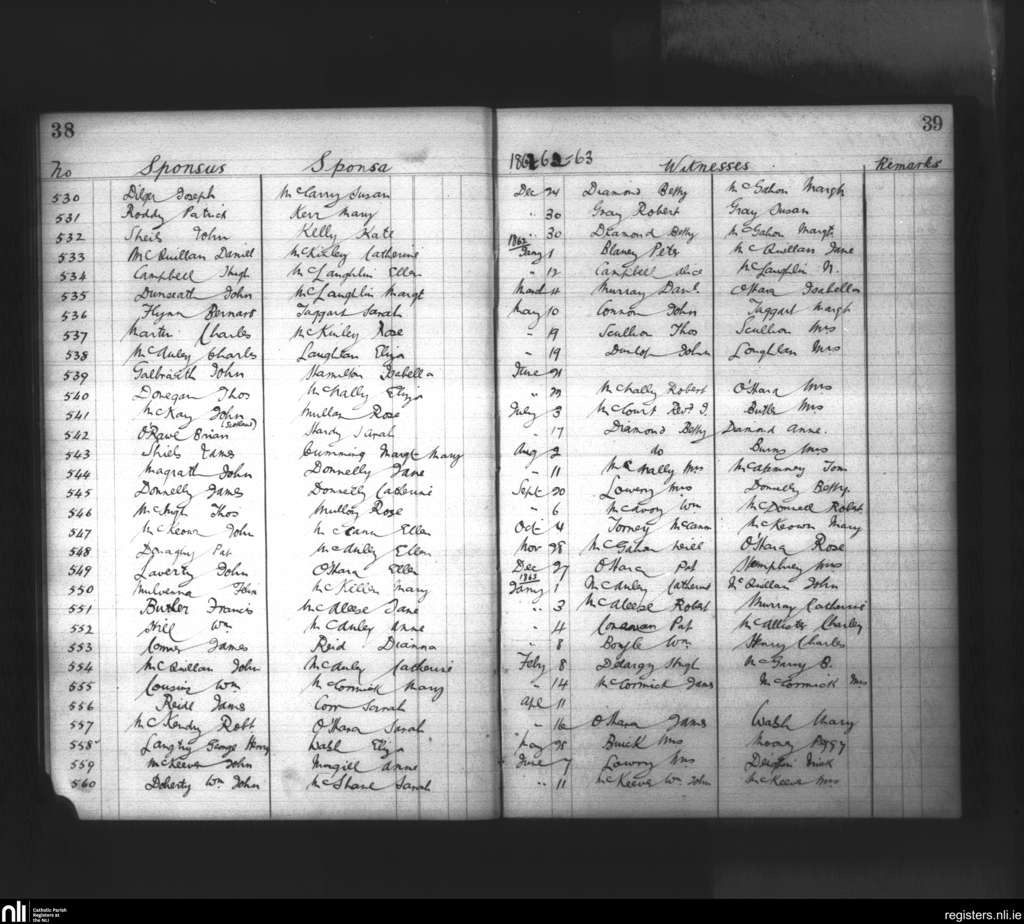 38
39
No Sponsus Sponsa 1861-62-63 Witnesses Remarks
530 Joseph McCarry Susan Dec 24 Diamond Betty McGahon Margt
531 Roddy Patrick Kerr Mary " 30 Gray Robert Gray Susan
532 Sheils John Kelly Kate " 30 Diamond Betty McGahon Margt
533 McQuillan Daniel McKinley Catherine 1862 Jany 1 Blaney Peter McQuillan Jane
534 Campbell Hugh McLaughlin Ellen " 12 Campbell Alice McLaughlin N.
535 Dunseath John McLaughlin Margt March 4 Murray Danl O'Hara Isabella
536 Flynn Bernard Taggart Sarah May 10 Connor John Taggart Margt
537 Martin Charles McKinley Rose " 19 Scullion Thos Scullion Mrs
538 McAuley Charles Laughlan Eliza " 19 Dunlop John Loughlan Mrs
539 Galbraith John Hamilton Isabella June 21
540 Donegan Thos McNally Eliza " 29 McNally Robert O'Hara Mrs
541 McKay John (Scotland) Mullan Rose July 3 McCourt Revd J. Butler Mrs
542 O'Rawe Brian Hardy Sarah " 17 Diamond Betty Diamond Anne.
543 Shiels James Cumming Margt Mary Aug 2 do Burns Mrs
544 Magrath John Donnelly Jane " 11 McNally Mrs Tom
545 Donnelly James Donnelly Catherine Sept 20 Lowery Mrs Donnelly Betty
546 McHugh Thos Mulloy Rose " 6 McAvoy Wm McDonnell Robert
547 McKeown John McCann Ellen Oct 4 Torney McCann McKeown Mary
548 Donaghy Pat McAuley Ellen Nov 28 McGahon Neill O'Hara Rose
549 Laverty John O'Hara Ellen Dec 27 O'Hara Pat Humphrey Mrs
550 Mulvenna Felix McKillen Mary 1863 Jany 1 McAuley Catherine McQuillan John
551 Butler Francis McAleese Jane " 3 McAleese Robert Murray Catherine
552 Hill Wm McAuley Anne " 4 Pat McAllister Charley
553 Connor James Reid Dianna " 8 Boyle Wm Henry Charles
554 McQuillan John McAuley Catherine Feby 8 Hugh McGarry B.
555 Cousins Wm McCormick Mary " 14 McCormick James McCormick Mrs
556 Reide James Corr Sarah Apl 11
557 McKendry Robt O'Hara Sarah " 16 O'Hara James Walsh Mary
558 Langtry George Henry Walsh Eliza May 25 Buick Mrs Mooney Peggy
559 McKeever John Magill Anne June 7 Lowry Mrs Mick
560 Doherty Wm John McShane Sarah " 11 McKeever Wm John McKeever Mrs
nli Catholic Parish Registers at the NLI
registers.nli.ie